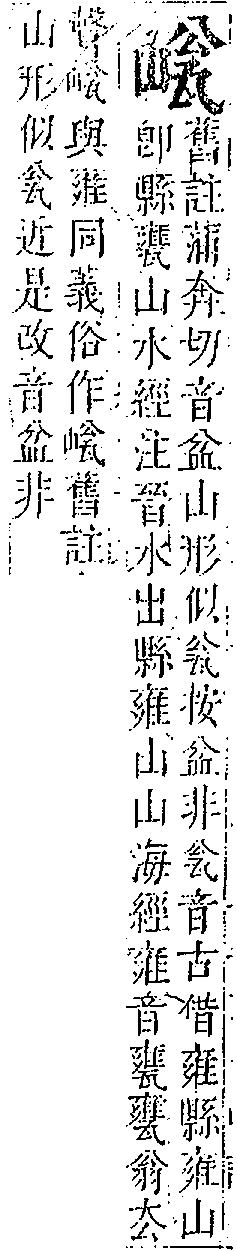 舊註蒲奔切音盆山形似瓮按盆非瓮音古借雍縣雍山
卽縣甕山水經注晉水出縣雍山山海經雍音甕甕翁厺
聲與雍同義俗作舊註
山形似瓮近是改音盆非